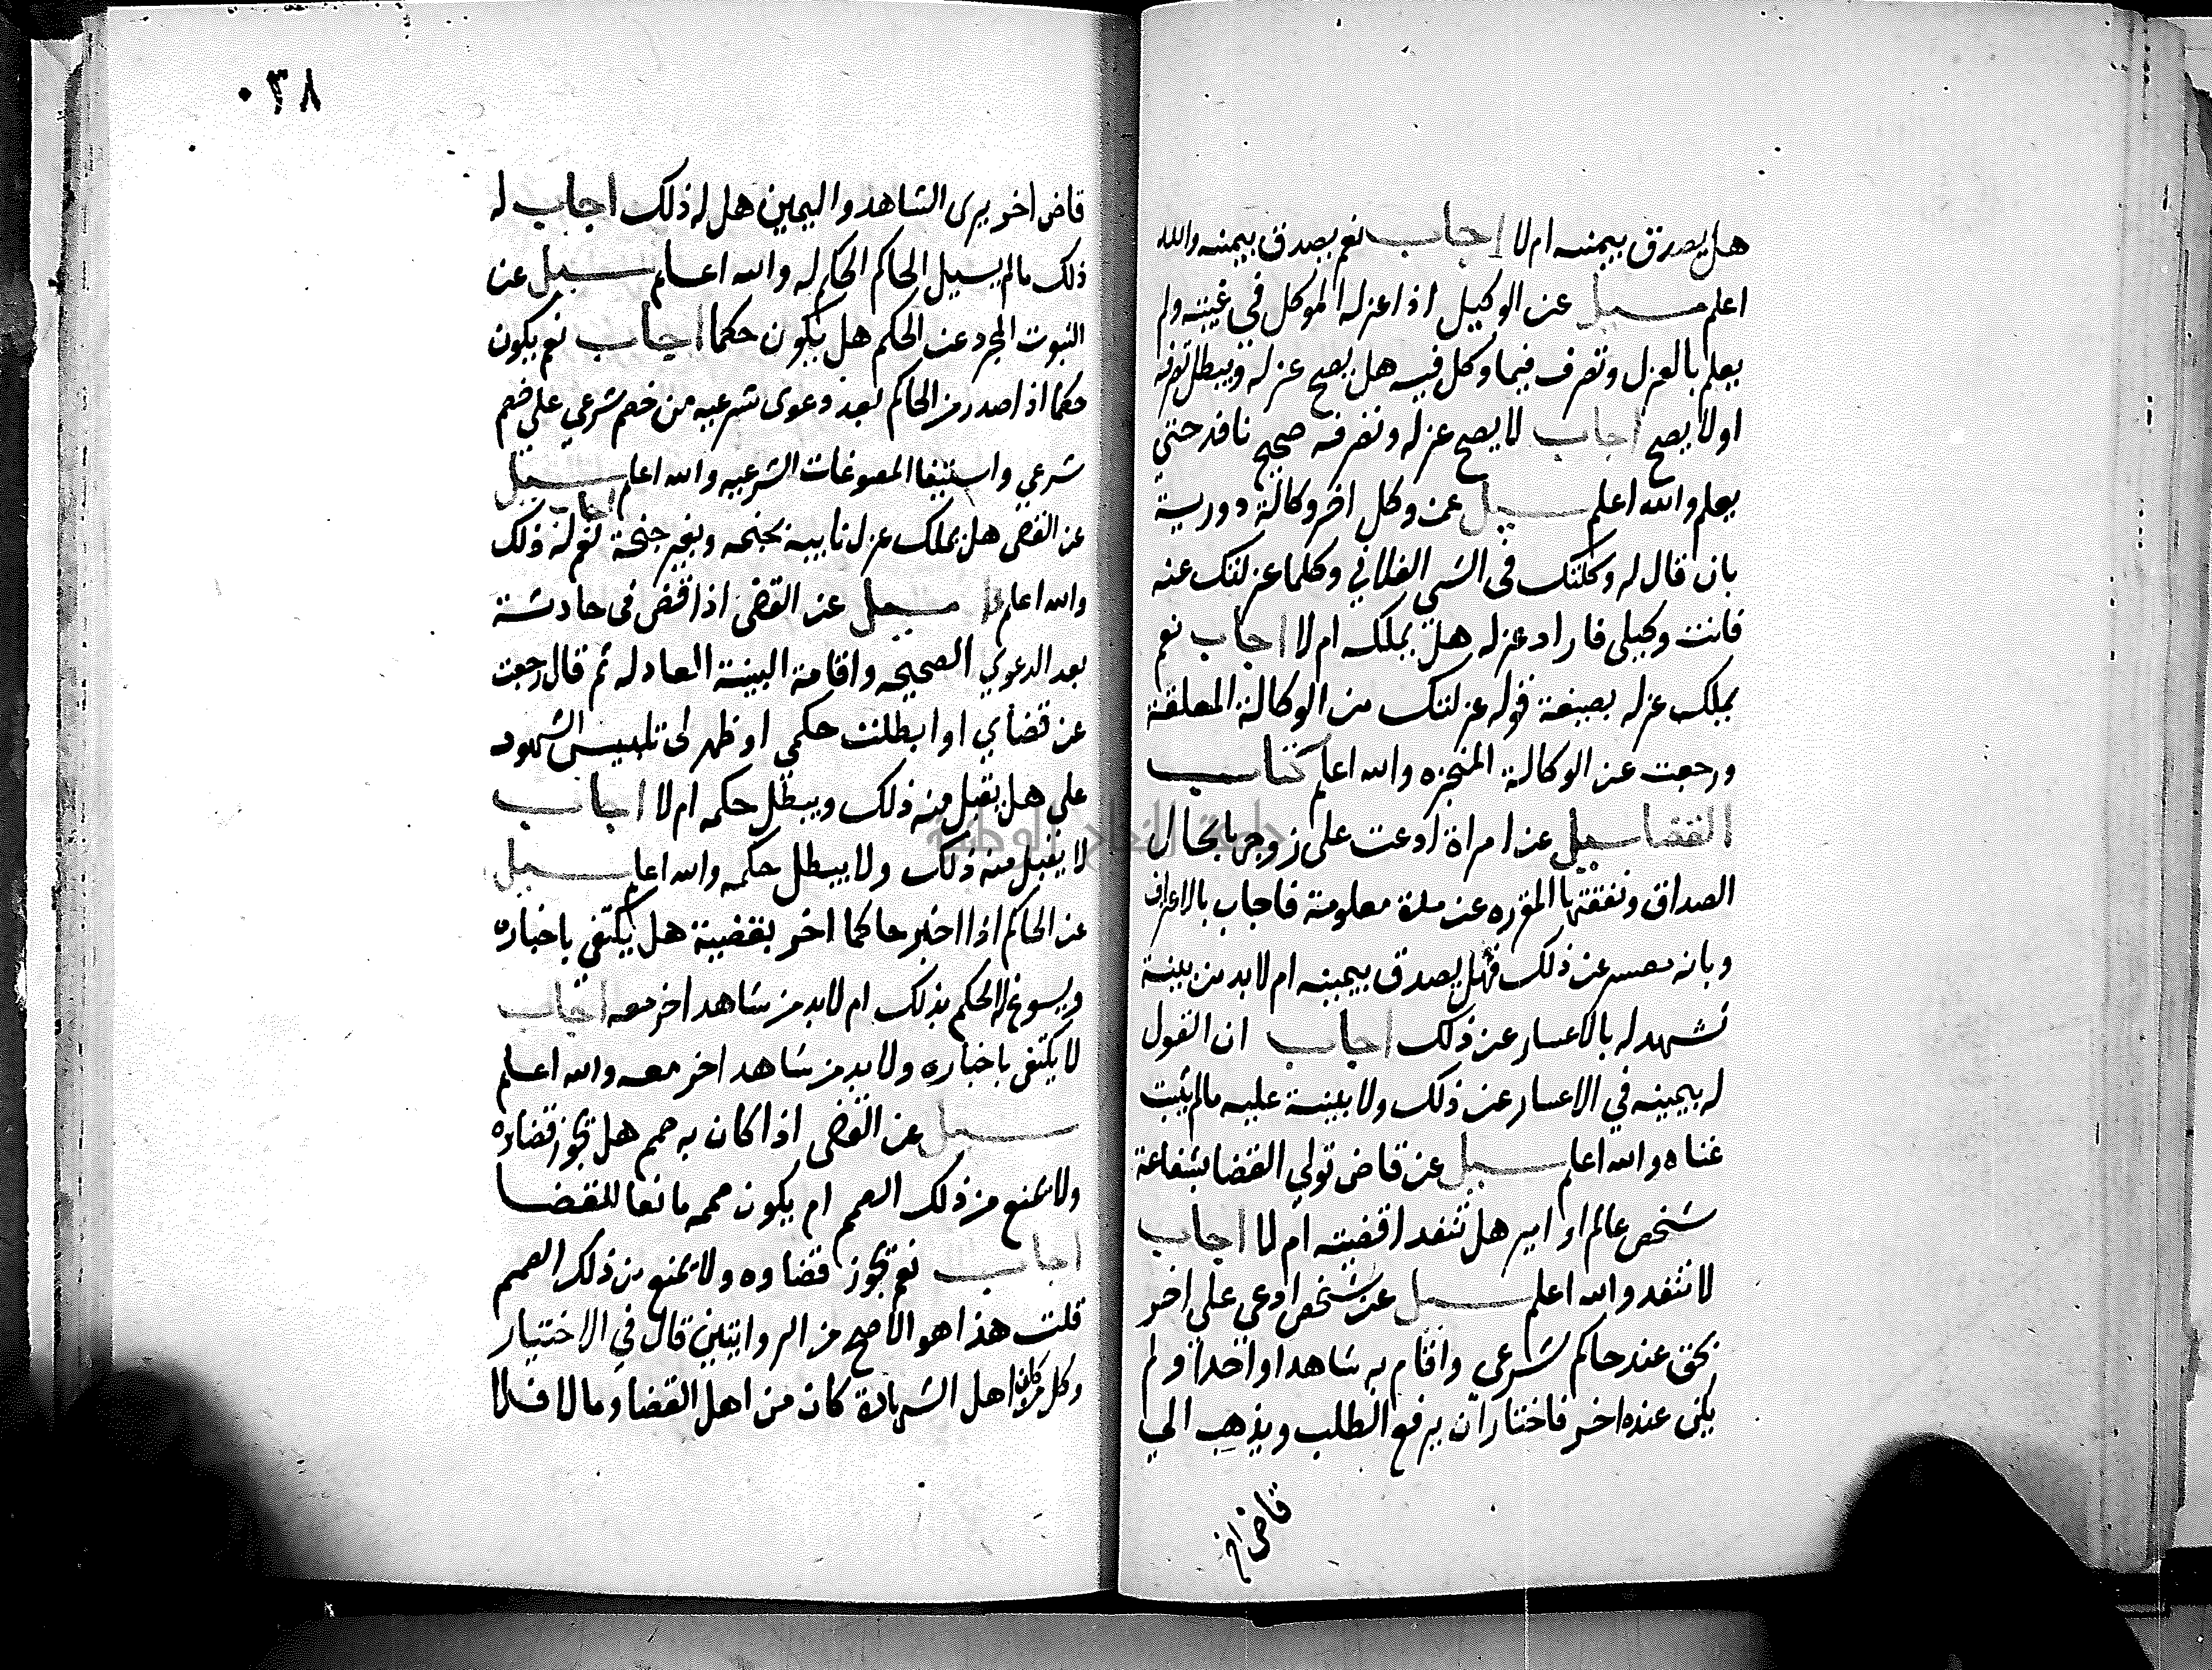 هل يصدق بيمينه ام لا اجاب نعم يصدق بيمينه والله
اعلم سيل عن الوكيل اذا عزله الموكل في غيبته ولم
يعلم بالعزل وتصرف فيما وكل فيه هل يصح عزله ويبطل تصرفه
او لا يصح اجاب لا يصح عزله وتصرفه صحيح نافد حتى
يعلم والله اعلم سيل عمن وكل اخر وكالة دورية
بان قال له وكلتك فى الشي الفلاني وكلما عزلتك عنه
فانت وكيلى فاراد عزله هل يملك ام لا اجاب نعم
يملك عزله بصيغة قوله عزلتك من الوكالة المعلقة
ورجعت عن الوكالة المنجزه والله اعلم كتاب
القضا سيل عن امراة ادعت على زوجها بحال
الصداق ونفقتها المقرره عن مدة معلومة فاجاب بالاعتراف
وبانه معسر عن ذلك فهل يصدق بيمينه ام لا بد من بينة
تشهد له بالاعسار عن ذلك اجاب ان القول
له بيمينه في الاعسار عن ذلك ولا بينة عليه مالم يثبت
غناه والله اعلم سيل عن قاض تولي القضا بشفاعة
شخص عالم او امير هل تنفد اقضيته ام لا اجاب
لا تنفد والله اعلم سيل عن شخص ادعى على اخر
بحق عند حاكم شرعى واقام به شاهدا واحدا ولم
يكن عنده اخر فاختار ان يرفع الطلب ويذهب الي
قاض اخر
٠٣٨
قاض اخر يرى الشاهد واليمين هل له ذلك اجاب له
ذلك مالم يسيل الحاكم الحكم له والله اعلم سيل عن
الثبوت المجرد عن الحكم هل يكون حكما اجاب نعم يكون
حكما اذا صدر من الحاكم بعد دعوى شرعيه من خصم شرعي على خصم
شرعي واستيفا المصوغات الشرعيه والله اعلم سيل
عن القضى هل يملك عزل نايبه بجنحه وبغير جنحة اجاب نعم له ذلك
والله اعلم سيل عن القضى اذا قضى فى حادثة
بعد الدعوي الصحيحه واقامة البينة العادله ثم قال رجعت
عن قضاي او ابطلت حكمي او ظهر لى تلبيس الشهود
علي هل يقبل منه ذلك ويبطل حكمه ام لا اجاب
لا يقبل منه ذلك ولا يبطل حكمه والله اعلم سيل
عن الحاكم اذا اخبر حاكما اخر بقضية هل يكتفى باخباره
ويسوغ له الحكم بذلك ام لا بد من شاهد اخر معه اجاب
لا يكتفى باخباره ولا بد من شاهد اخر معه والله اعلم
سيل عن القضى اذا كان به صمم هل تجوز قضاوه
ولا يمنع من ذلك الصمم ام يكون صممه مانعا للقضا
اجاب نعم تجوز قضاوه ولا يمنع من ذلك الصمم
قلت هذا هو الاصح من الروايتين قال في الاختيار
وكل من كان اهل الشهادة كان من اهل القضا ومالا فلا